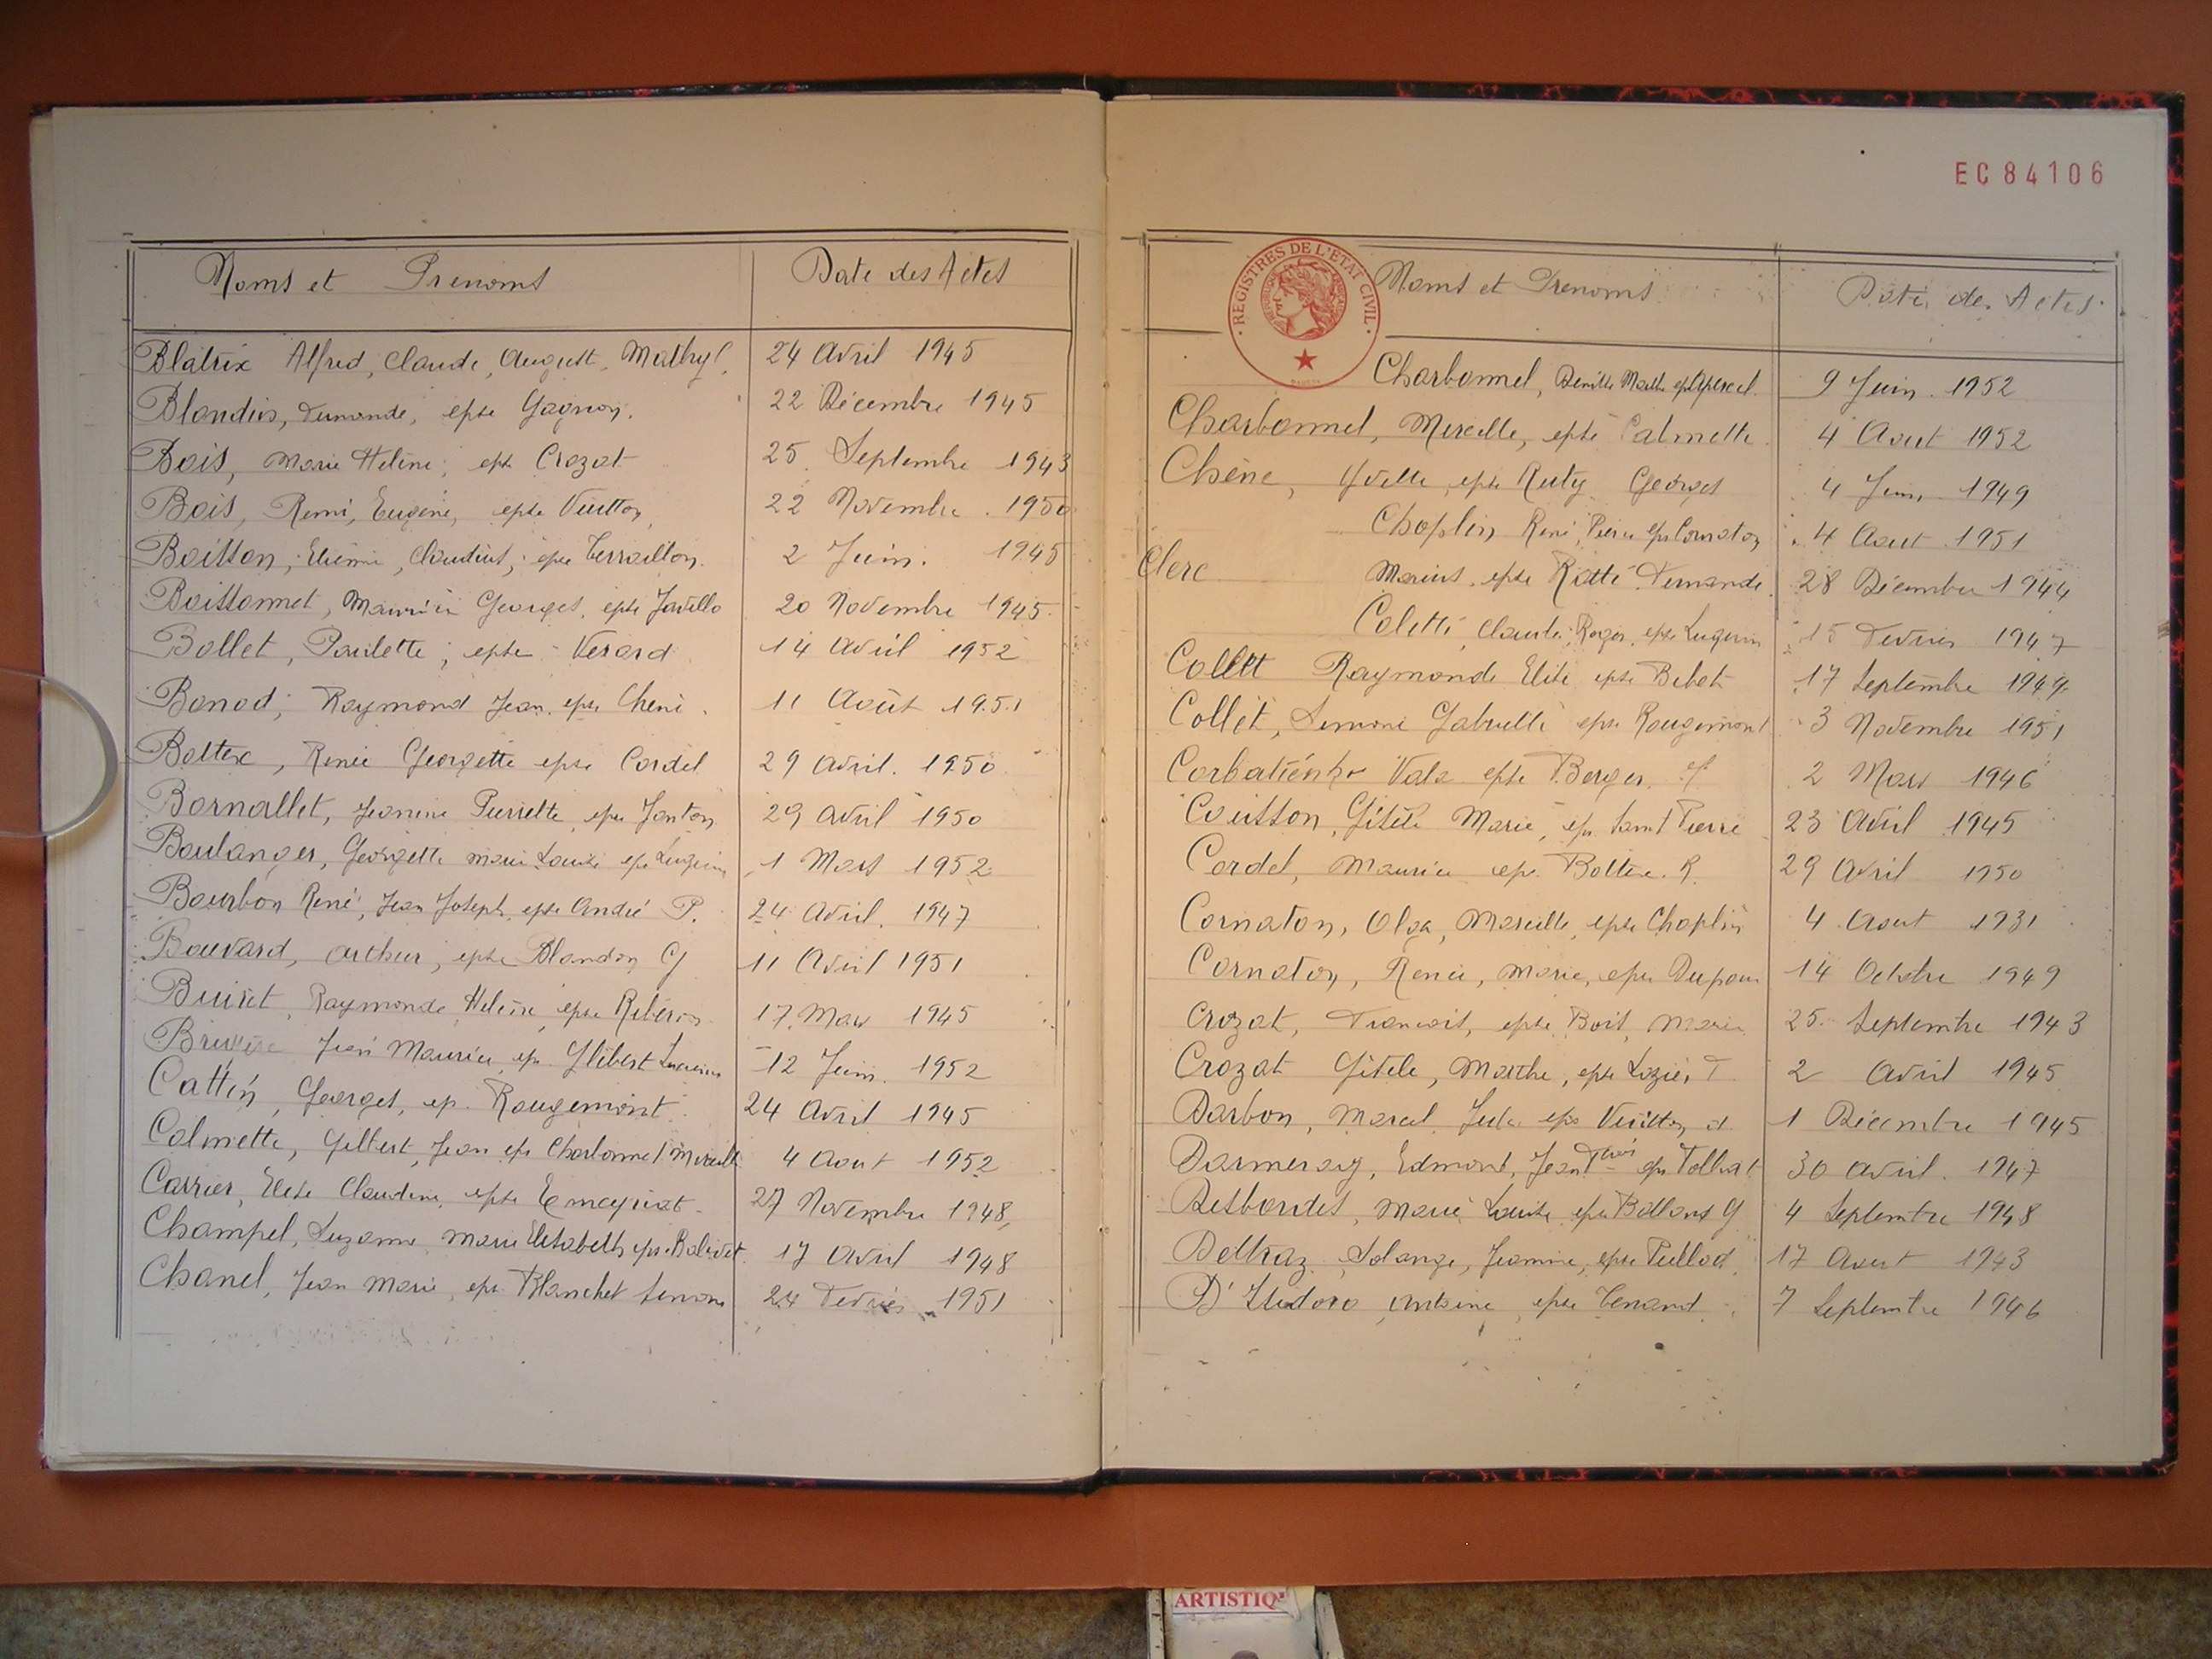 EC84106
Noms et Prenoms Date des Actes
Blatrix Alfred, Claude, August, Mathyl. 24 Avril 1945
Blandin, Fernande, epse Gagnon. 22 Décembre 1945
Bois, Marie Hélène, epse Crozat 25 Septembre 1943
Bois, Remi, Eugène, epse Vuitton 22 Novembre 1950
Boisson, Etienne, Claudius, epse Terraillon. 2 Juin. 1945
Boissonnet, Maurice Georges, epse Javello 20 Novembre 1945
Bollet, Paulette, epse Verard 14 Avril 1952
Bonod, Raymond Jean, epse Chene. 11 Août 1951
Bottex, Renée Georgette epse Cordel 29 Avril. 1950
Bornallet, Jeanine Pierrette, epse Janton 29 Avril 1950
Boulanger, Georgette Marie Louise epse Luguin 1 Mars 1952
Bourbon René, Jean Joseph, epse André P. 24 Avril. 1947
Bouvard, Arthur, epse Blandon G 11 Avril 1951
Buiret, Raymonde Hélène, epse Riberon 17. Mars 1945
Jean Maurice, ep. Glibert 12 Juin. 1952
Cattin, Georges, ep. Rougemont 24 Avril 1945
Calmette, Gilbert, Jean epse Charbonnel Mireille 4 Aout 1952
Carrier, Elise Claudine, epse Emeyriat 27 Novembre 1948
Champel, Suzanne Marie Elisabeth epse Balivet 17 Avril 1948
Chanel, Jean Marie, epse Blanchet Simone 24 Fevrier 1951
REGISTRES DE L'ETAT CIVIL
Noms et Prenoms Date des Actes
Charbonnel, 9 Juin. 1952
Charbonnel, Mireille, epse Calmette 4 Aout 1952
Chêne, Yvette, epse Ruty Georges 4 Juin 1949
Choplin René, Pierre epse Cornaton 4 Aout 1951
Clerc Marius epse Ratté Fernande 28 Décembre 1944
Coletti, Claude, Roger, epse Luguin 15 Fevrier 1947
Collet Raymonde Elise epse Bebot 17 Septembre 1949
Collet, Simone Gabrielle epse Rougemont 3 Novembre 1951
Vala epse Berger 2 Mars 1946
Couisson, Gisèle Marie, ep. Saint Pierre 23 Avril 1945
Cordel, Maurice epse Bottex. R. 29 Avril 1950
Cornaton, Olga, Marcelle, epse Choplin 4 Aout 1931
Cornaton, Renée, Marie, epse 14 Octobre 1949
Crozat, Francois, epse Bois, Marie 25 Septembre 1943
Crozat Gisele, Marthe, epse Lozier F 2 Avril 1945
Darbon, Marcel Jules epse Vuitton 1 Décembre 1945
Darmeray, Edmond, Jean epse Tolhat 30 Avril. 1947
Desbordes, Marie Louise epse G 4 Septembre 1948
Deltraz Solange, Jeanine, epse Tullod 17 Aout 1943
D'Isidoro Antoine, epse Tenand 7 Septembre 1946
ARTISTIQ